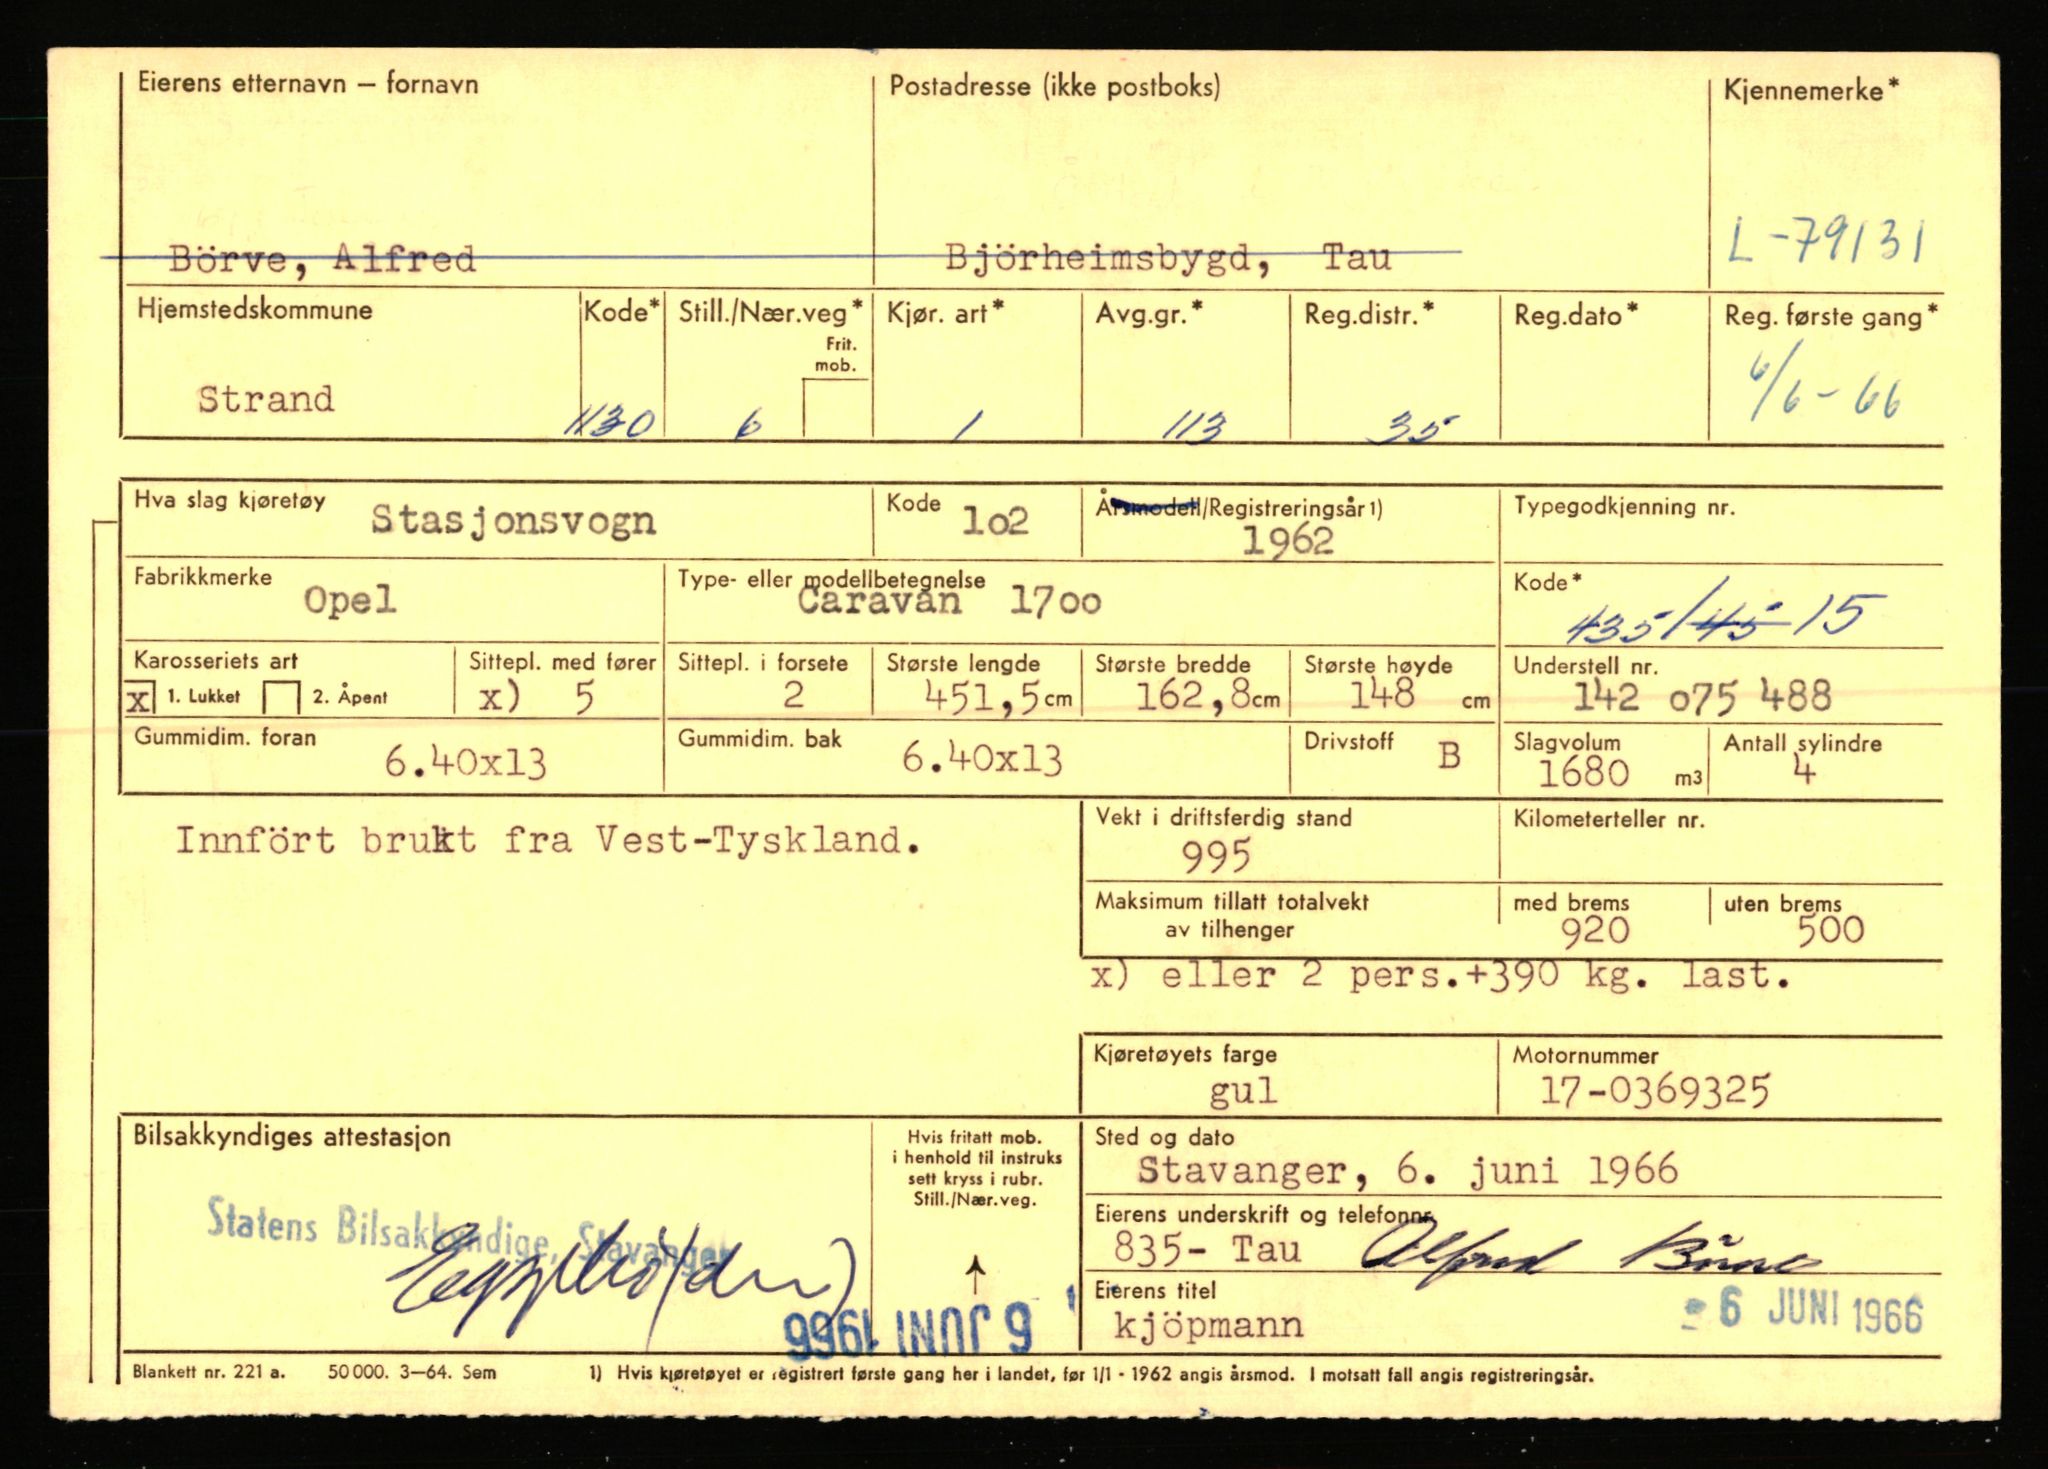 Eierens etternavn – fornavn Postadresse (ikke postboks) Kjennemerke*
Börve, Alfred Björheimsbygd, Tau L-79131
Hjemstedskommune Kode* Still./Nær.veg* Kjør. art* Avg.gr.* Reg.distr.* Reg.dato* Reg. første gang*
Frit.
mob.
Strand 1130 6 1 113 35 6/6-66
Hva slag kjøretøy Stasjonsvogn Kode 1o2 Årsmodell/Registreringsår1) Typegodkjenning nr.
1962
Fabrikkmerke Type- eller modellbetegnelse Kode*
Opel Caravan 17oo 435/45 15
Karosseriets art Sittepl. med fører Sittepl. i forsete Største lengde Største bredde Største høyde Understell nr.
x 1. Lukket 2. Åpent x) 5 2 451,5 cm 162,8 cm 148 cm 142 o75 488
Gummidim. foran Gummidim. bak Drivstoff Slagvolum Antall sylindre
6.40x13 6.40x13 B 1680 m3 4
Innfört brukt fra Vest-Tyskland.
Vekt i driftsferdig stand Kilometerteller nr.
995
Maksimum tillatt totalvekt med brems uten brems
av tilhenger 920 500
x) eller 2 pers.+390 kg. last.
Kjøretøyets farge Motornummer
gul 17-0369325
Bilsakkyndiges attestasjon
Hvis fritatt mob.
i henhold til instruks
sett kryss i rubr.
Still./Nær.veg.
Statens Bilsakkyndige, Stavanger
6 JUNI 1966
Sted og dato
Stavanger, 6. juni 1966
Eierens underskrift og telefonnr.
835- Tau Alfred Börve
Eierens titel
kjöpmann
- 6 JUNI 1966
Blankett nr. 221 a. 50 000. 3–64. Sem 1) Hvis kjøretøyet er registrert første gang her i landet, før 1/1 - 1962 angis årsmod. I motsatt fall angis registreringsår.